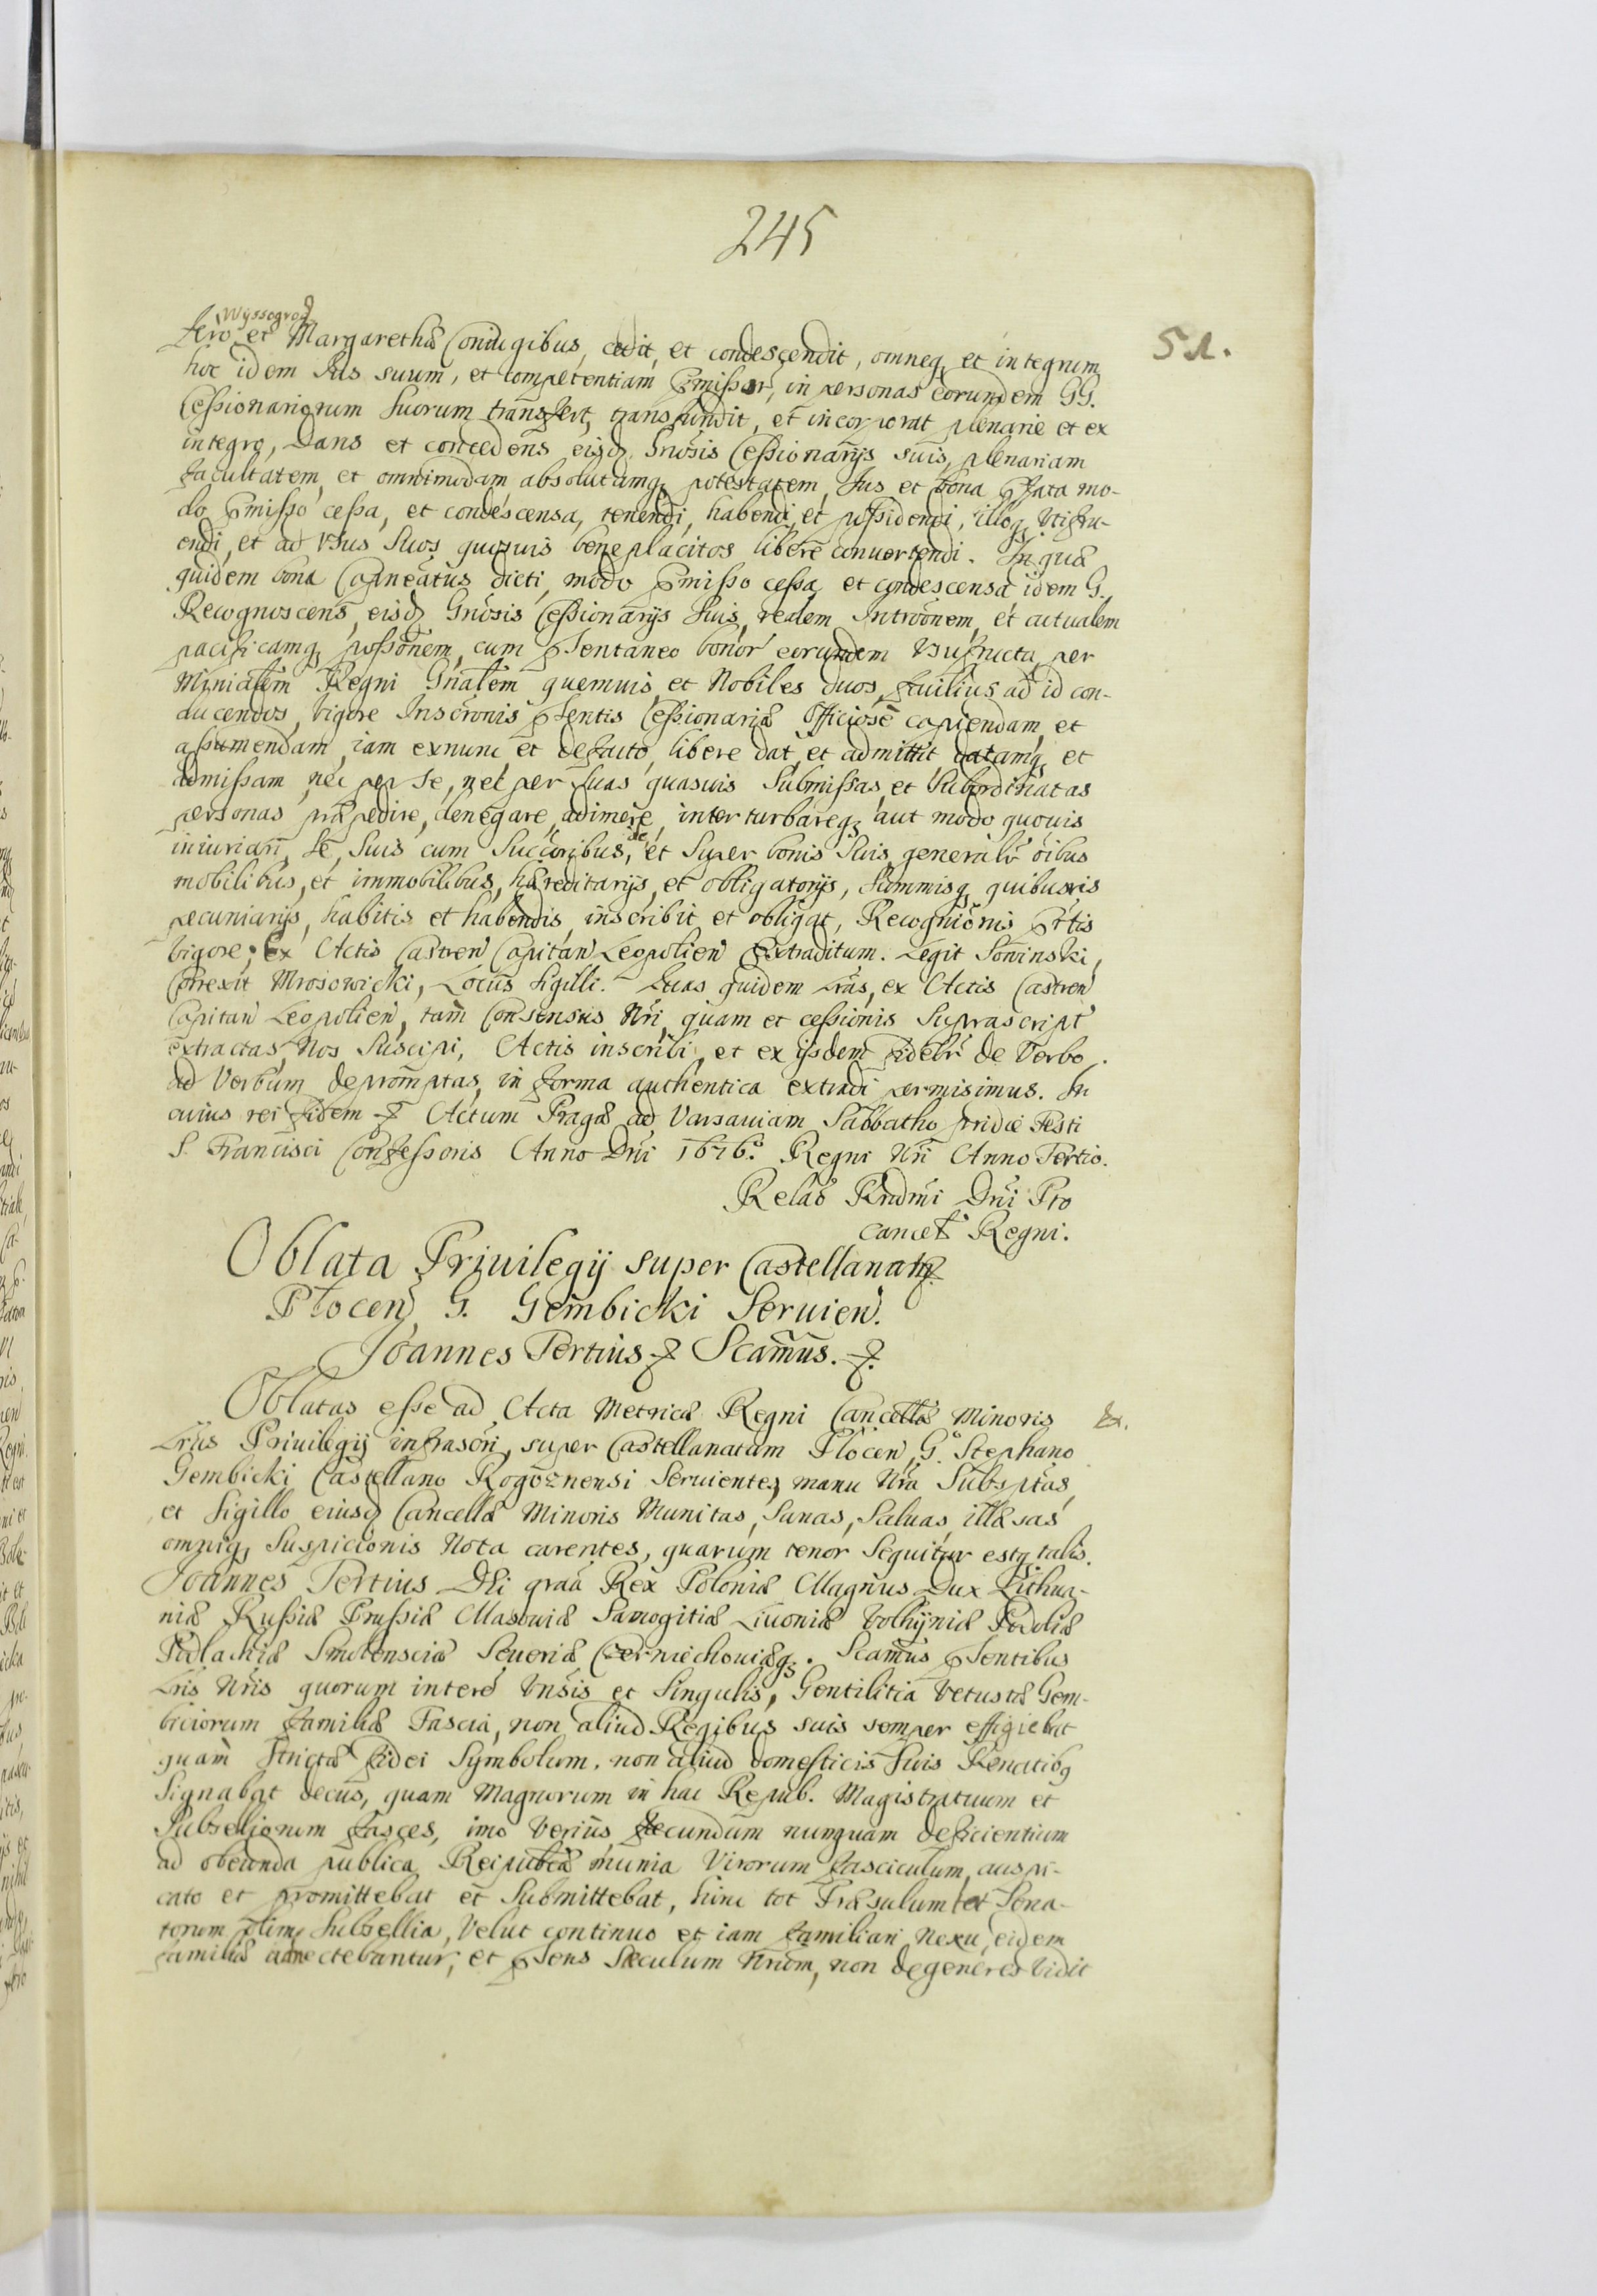 245
51.
Wyssogrod
fero et Margarethæ Coniugibus, cedit, et condescendit, omneq, et integrum
hoc idem Ius suum, et competentiam pmissor, in personas eorundem GG.
Cessionariorum Suorum transfert, transfundit, et incorporat plenarie et ex
integro, Dans et concedens eisd Gnosis Cessionarijs suis, plenariam
facultatem, et omnimodam absolutamq potestatem, Ius et bona pfata mo-
do pmisso cessa, et condescensa, tenendi, habendi, et possidendi, illoq Utifru-
endi, et ad Usus Suos quosuis beneplacitos libere conuertendi. In quæ
quidem bona dicti, modo pmisso cessa et condescensa idem G.
Recognoscens, eisd Gnosis Cessionarijs Suis, realem Introonem, et actualem
pacificamq possonem, cum psentaneo bonor eorundem Usufructu, per
Mìnialem Regni Gnalem quemuis, et Nobiles duos, facilius ad id con-
ducendos, vigore Inscronis psentis Cessionariæ Officiose capiendam, et
assumendam, iam exnunc et defacto, libere dat, et admittit, datamq et
admissam, nec per Se, nec per Suas quasuis Submissas, et Subordinatas
personas præpedire, denegare, adimere, interturbareq aut modo quouis
iniuriari, Se, Suis cum Succoribus, de et Super bonis Suis, generalr oibus
mobilibus, et immobilibus, hæreditarijs, et obligatorijs, Summisq quibusuis
pecuniarijs, habitis et habendis, inscribit et obligat, Recognionis pntis
vigore; Ex Actis Castren Capitan Leopolien Extraditum. Legit Soninski,
Correxit Mrosowicki, Locus Sigilli. Quas quidem Lras, ex Actis Castren
Capitan Leopolien, tam Consensus Nri, quam et cessionis Suprascript
extractas, Nos Suscipi, Actis inscribi, et ex ijsdem fidelr de Verbo
ad Verbum depromptas, in forma authentica extradi permisimus. In
cuius rei fidem & Actum Pragæ ad Varsauiam Sabbatho pridie Festi
S. Francisci Confessoris Anno Dni 1676. Regni Nri Anno Tertio.
Relao Rndmi Dni Pro
cancell Regni.
Oblata Priuilegij super Castellanatu
Plocen, G. Gembicki Seruien.
Joannes Tertius & Scamus. &.
Oblatas esse ad Acta Metricæ Regni Cancellæ Minoris
Lras Priuilegij infrascri, super Castellanatum Plocen, Go Stephano
Gembicki Castellano Rogoznensi Seruientes, manu Nra Subsptas,
et Sigillo eiusd Cancellæ Minoris Munitas, Sanas, Saluas, illæsas
omniq Suspicionis Nota carentes, quarum tenor Sequitur estq talis.
Joannes Tertius Dei graa Rex Poloniæ Magnus Dux Lithua-
niæ Russiæ Prussiæ Masouiæ Samogitiæ Liuoniæ Volhyniæ Podoliæ
Podlachiæ Smolensciæ Seueriæ Czerniechouiæq. Scamus psentibus
Lris Nris quorum interē Unsis et Singulis, Gentilitia Vetustæ Gem-
biciorum familiæ Fascia, non aliud Regibus suis semper effigiebat
quam Strictæ fidei Symbolum, non aliud domesticis Suis Penatibq
Signabat decus, quam Magnorum in hac Repub. Magistratuum et
Subselliorum fasces, imo Verius, fecundum nunquam deficientium
ad obeunda publica Reipublcæ munia Virorum fasciculum, auspi-
cato et promittebat et Submittebat, hinc tot Præsulum et Sena-
torum olim Subsellia, Velut continuo et iam familiari Nexu, eidem
familiæ annectebantur, et psens Sæculum Nrom, non degeneres Vidit